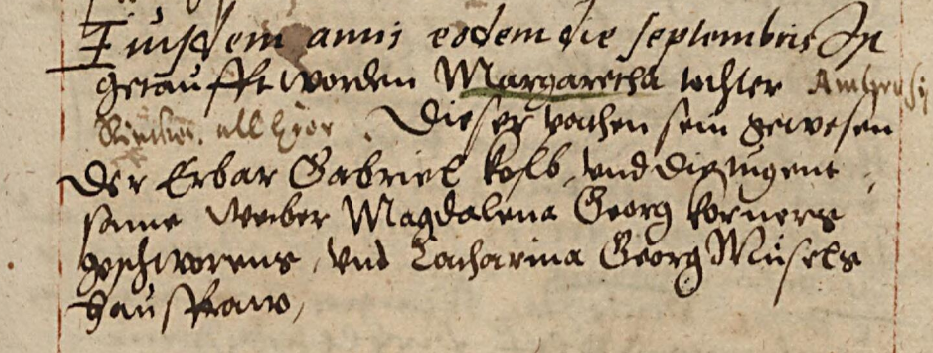 Eiusdem anni eodem die septembris Ist
getaufft worden Margaretha tochter Ambrosij
all hier. Dieser pathen sein gewesen
der Erbar Gabriel Kolb, vnd die tugent
same Weiber Magdalena Georg Korners
gschworens, vnd Catharina Georg Müsels
Hausfraw,